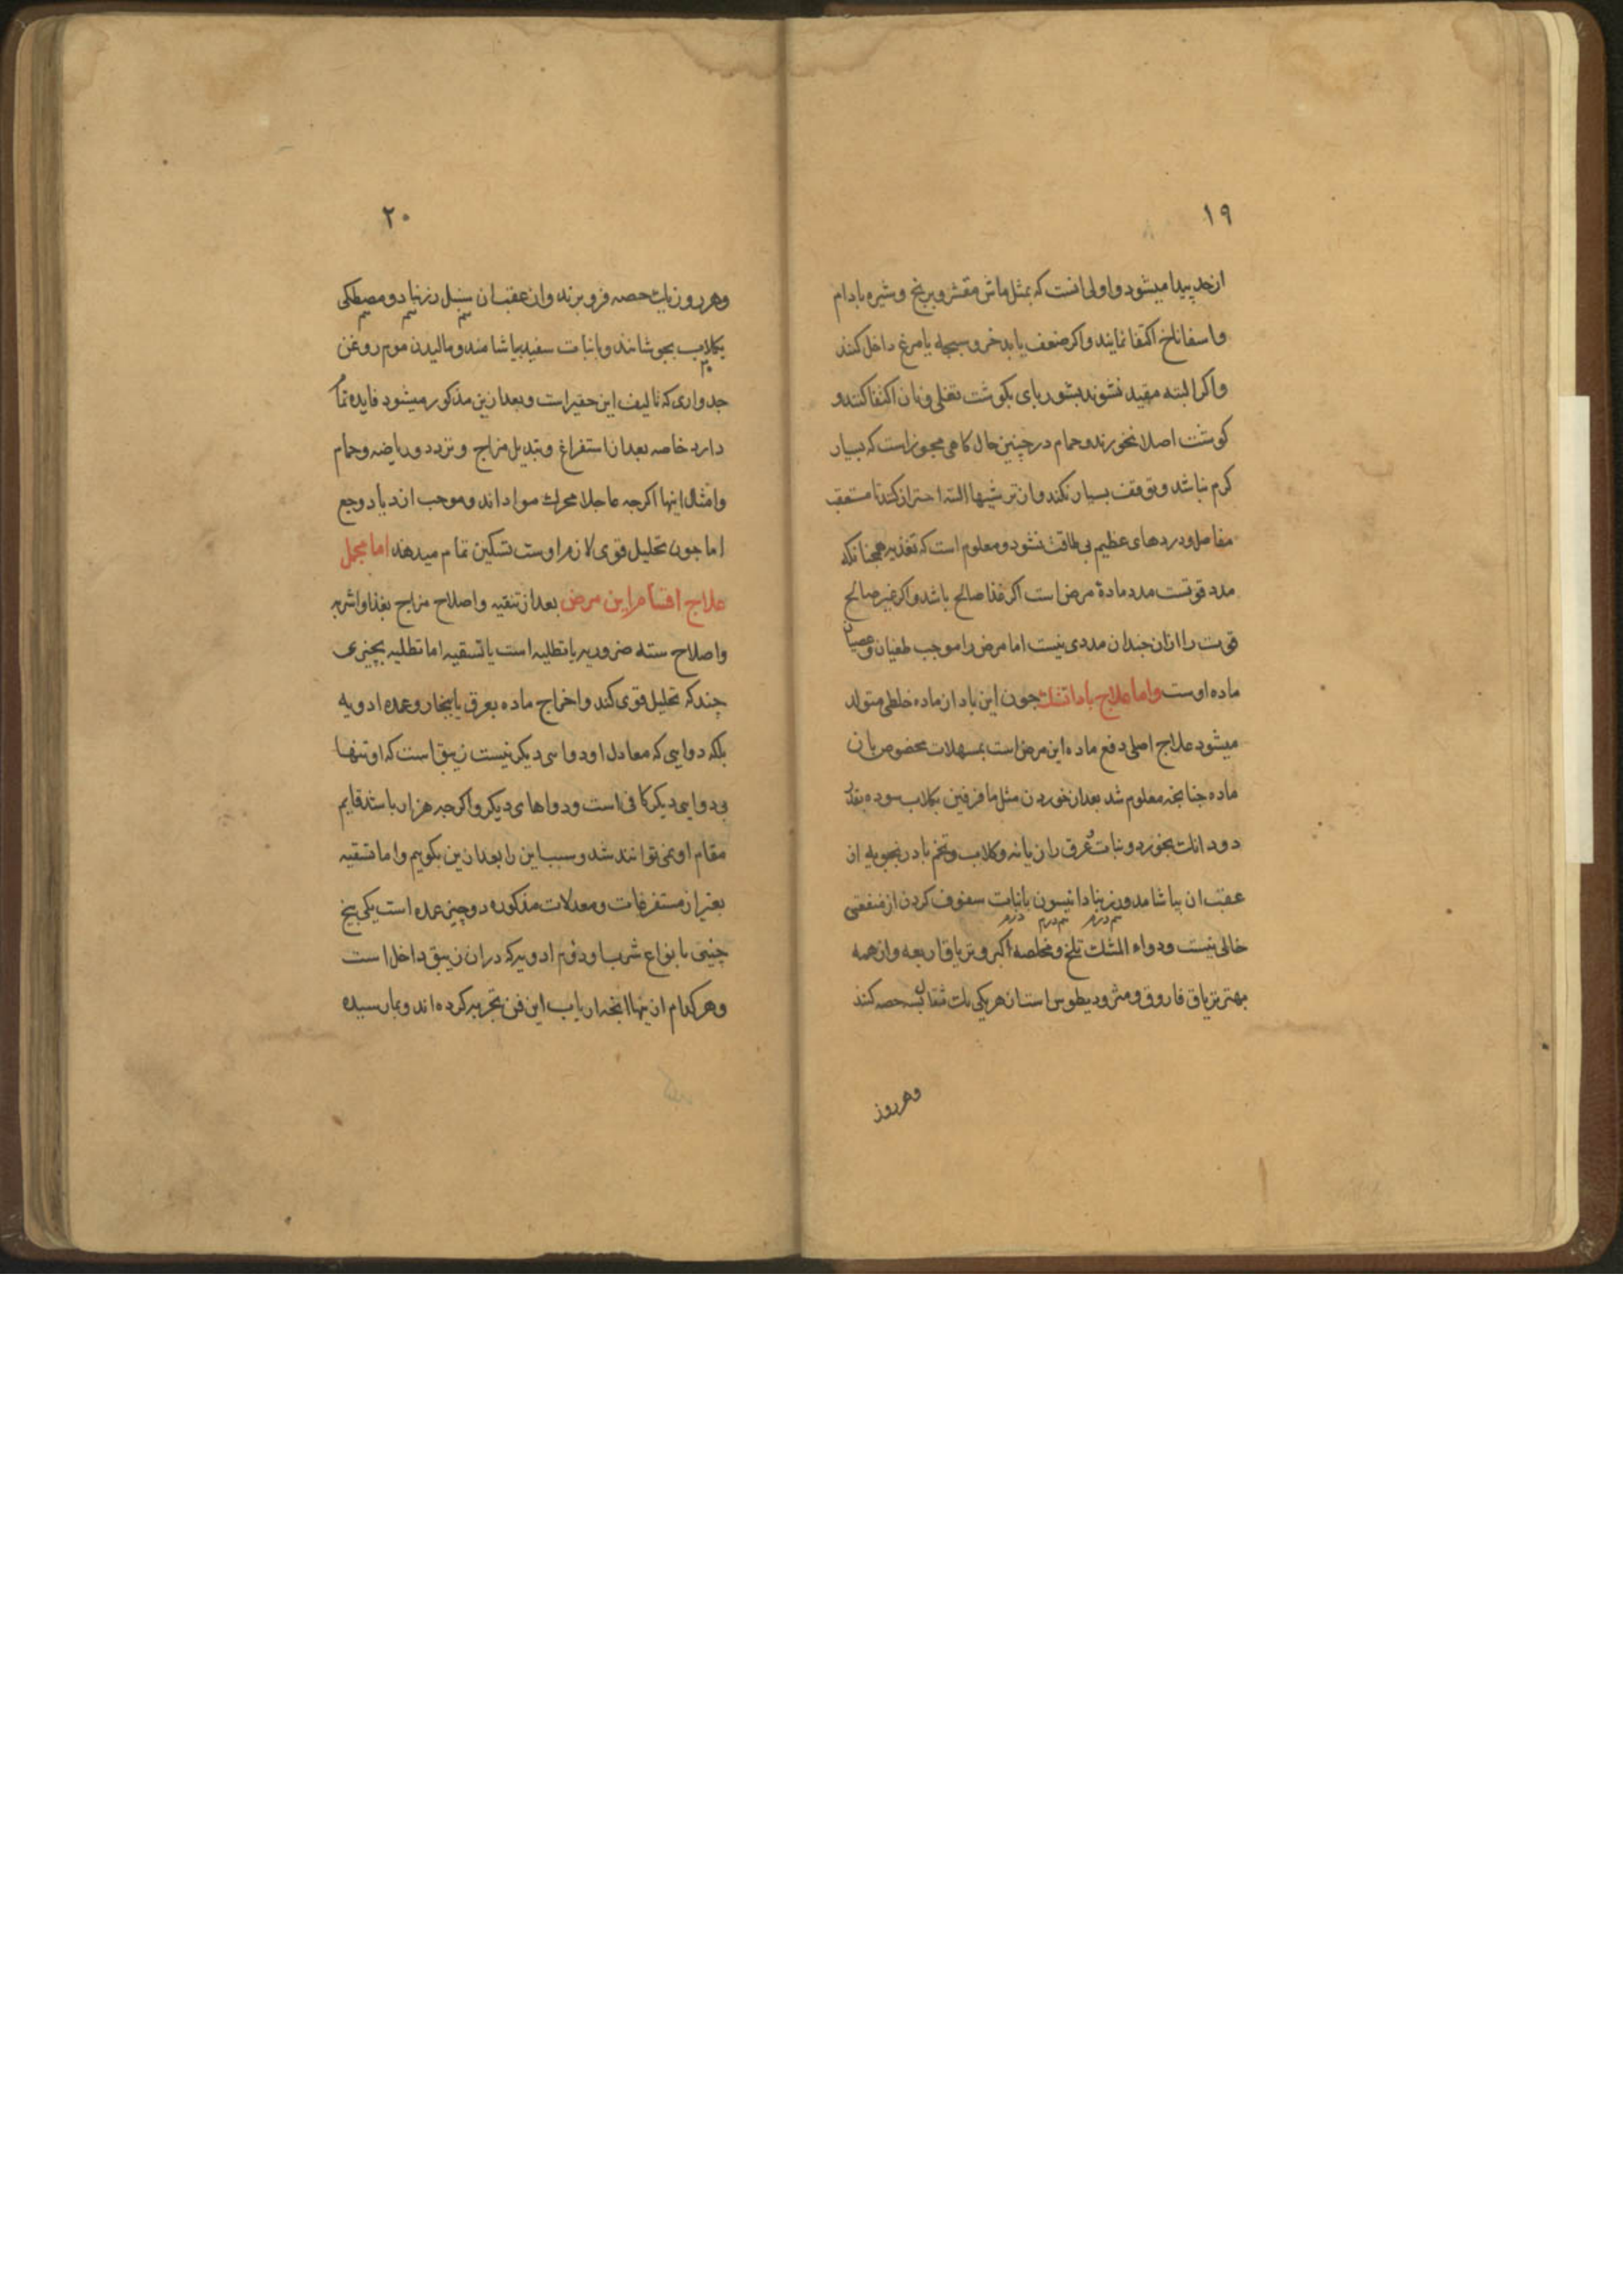 ۱۹
از حد پیدا میشود و اولی انست که بمثل ماش مقشر و برنج و شیره بادام
و اسفاناخ اکتفا نمایند و اکر ضعف یابد خروسبچه یا مرغ داخل کنند
و اکر البته مقید نشوند بشوربای بکوشت نقلی و نان اکتفا کنند و
کوشت اصلا نخورند و حمام در چنین حال کاهی مجوز است که بسیار
کرم نباشد و توقف بسیار نکند و از ترشیها البته احتراز کند تا مستعقب
مفاصل و دردهای عظیم بی طاقت نشود و معلوم است که تغذیه همچنانکه
مدد قوتست مدد مادهٔ مرض است اکر غذا صالح باشد و اکر غیر صالح
قوت را ازان چندان مددی نیست اما مرض را موجب طغیان و عصیان
ماده اوست و اما علاج باد اتشک جون این باد از ماده خلطی متولد
میشود علاج اصلی دفع ماده این مرض است بمسهلات مخصوص بان
ماده جنانجه معلوم شد بعد از خوردن مثل مافرفین بکلاب سوده بقدر
دو دانک بخورد و نبات و عرق رازیانه و کلاب و تخم بادرنجبویه از
عقب ان بیاشامد و زرنباد انیسون بانبات سفوف کردن از منفعتی
نیم درم نیم درم درم
خالی نیست و دواء المشک تلخ و مخلصه اکبر و تریاق اربعه و از همه
بهتر تریاق فاروق و مثرودیطوس است از هر یکی یک مثقال بسه حصه کنند
وهر روز
۲۰
وهر روز یک حصه فرو برند و از عقب ان سنبل زرنباد و مصطکی
نیم نیم نیم
بکلاب بجوشانند و بانبات سفید بیاشامند و مالیدن موم روغن
جدواری که تالیف این حقیر است و بعد ازین مذکور میشود فایده تمام
دارد خاصه بعد از استفراغ و تبدیل مزاج و تردد و ریاضه و حمام
و امثال اینها اکرجه عاجلا محرک مواد اند و موجب ازدیاد وجع
اما جون تحلیل قوی لازم اوست تسکین تمام میدهند اما مجمل
علاج اقسام این مرض بعد از تنقیه و اصلاح مزاج بغذا و اشربه
و اصلاح سته ضروریه یا تطلیه است یا تسقیه اما تطلیه بچیزی
چند که تحلیل قوی کند و اخراج ماده بعرق یا ببخار و عمده ادویه
بلکه دوایی که معادل او دواسی دیکر نیست زیبق است که او تنها
بی دوایی دیکر کافی است و دواهای دیکر و اکرجه هزار باشد قایم
مقام او نمی توانند شد و سبب این را بعد ازین بکویم و اما تسقیه
بغیر از مستفرغات و معدلات مذکوره دو چیز عمده است یکی بیخ
چینی بانواع شرب او دوم ادویه که دران زیبق داخل است
وهر کدام ازینها انجه ارباب این فن تجربه کرده اند و بما رسیده